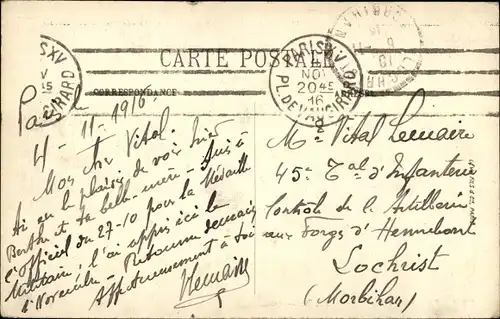 CARTE POSTALE
CORRESPONDANCE
PARIS XV
NOV
20 45
16
PL. DE VAUGIRARD
Paris
4-11-1916
Mon cher Vital.
Ai eu le plaisir de voir hier
Berthe et ta belle-mère - Suis à
l'Officiel du 27-10 pour la Médaille
Militaire, l'ai appris ici le
1er Novembre - Retourne demain
Affectueusement à toi
Lemaire
Mr Vital Lemaire
45e Tal d'Infanterie
Contrôle de l'Artillerie
aux Forges d'Hennebont
Lochrist
(Morbihan)